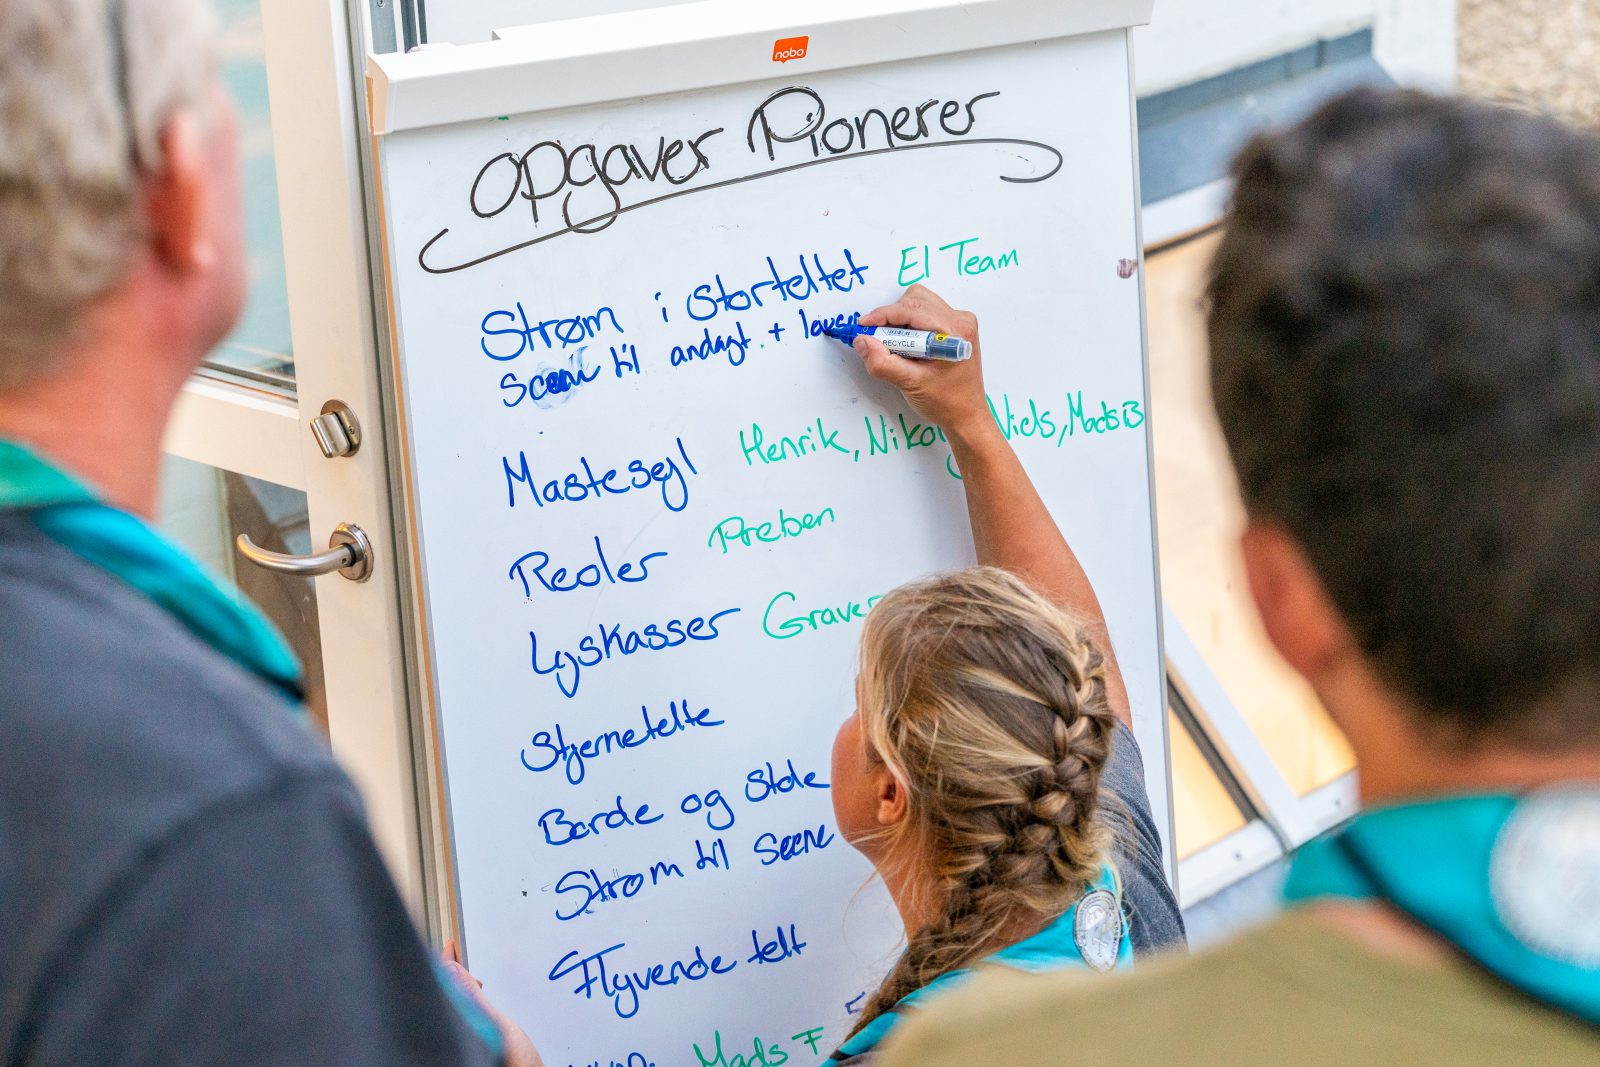 nobo
Opgaver Pionerer
Strøm i storteltet El Team
Scene til andagt. +
RECYCLE
Mastesejl Henrik, Niels, Mads B
Reoler Preben
Lyskasser
Stjernetelte
Borde og stole
Strøm til Scene
Flyvende telt
Mads F